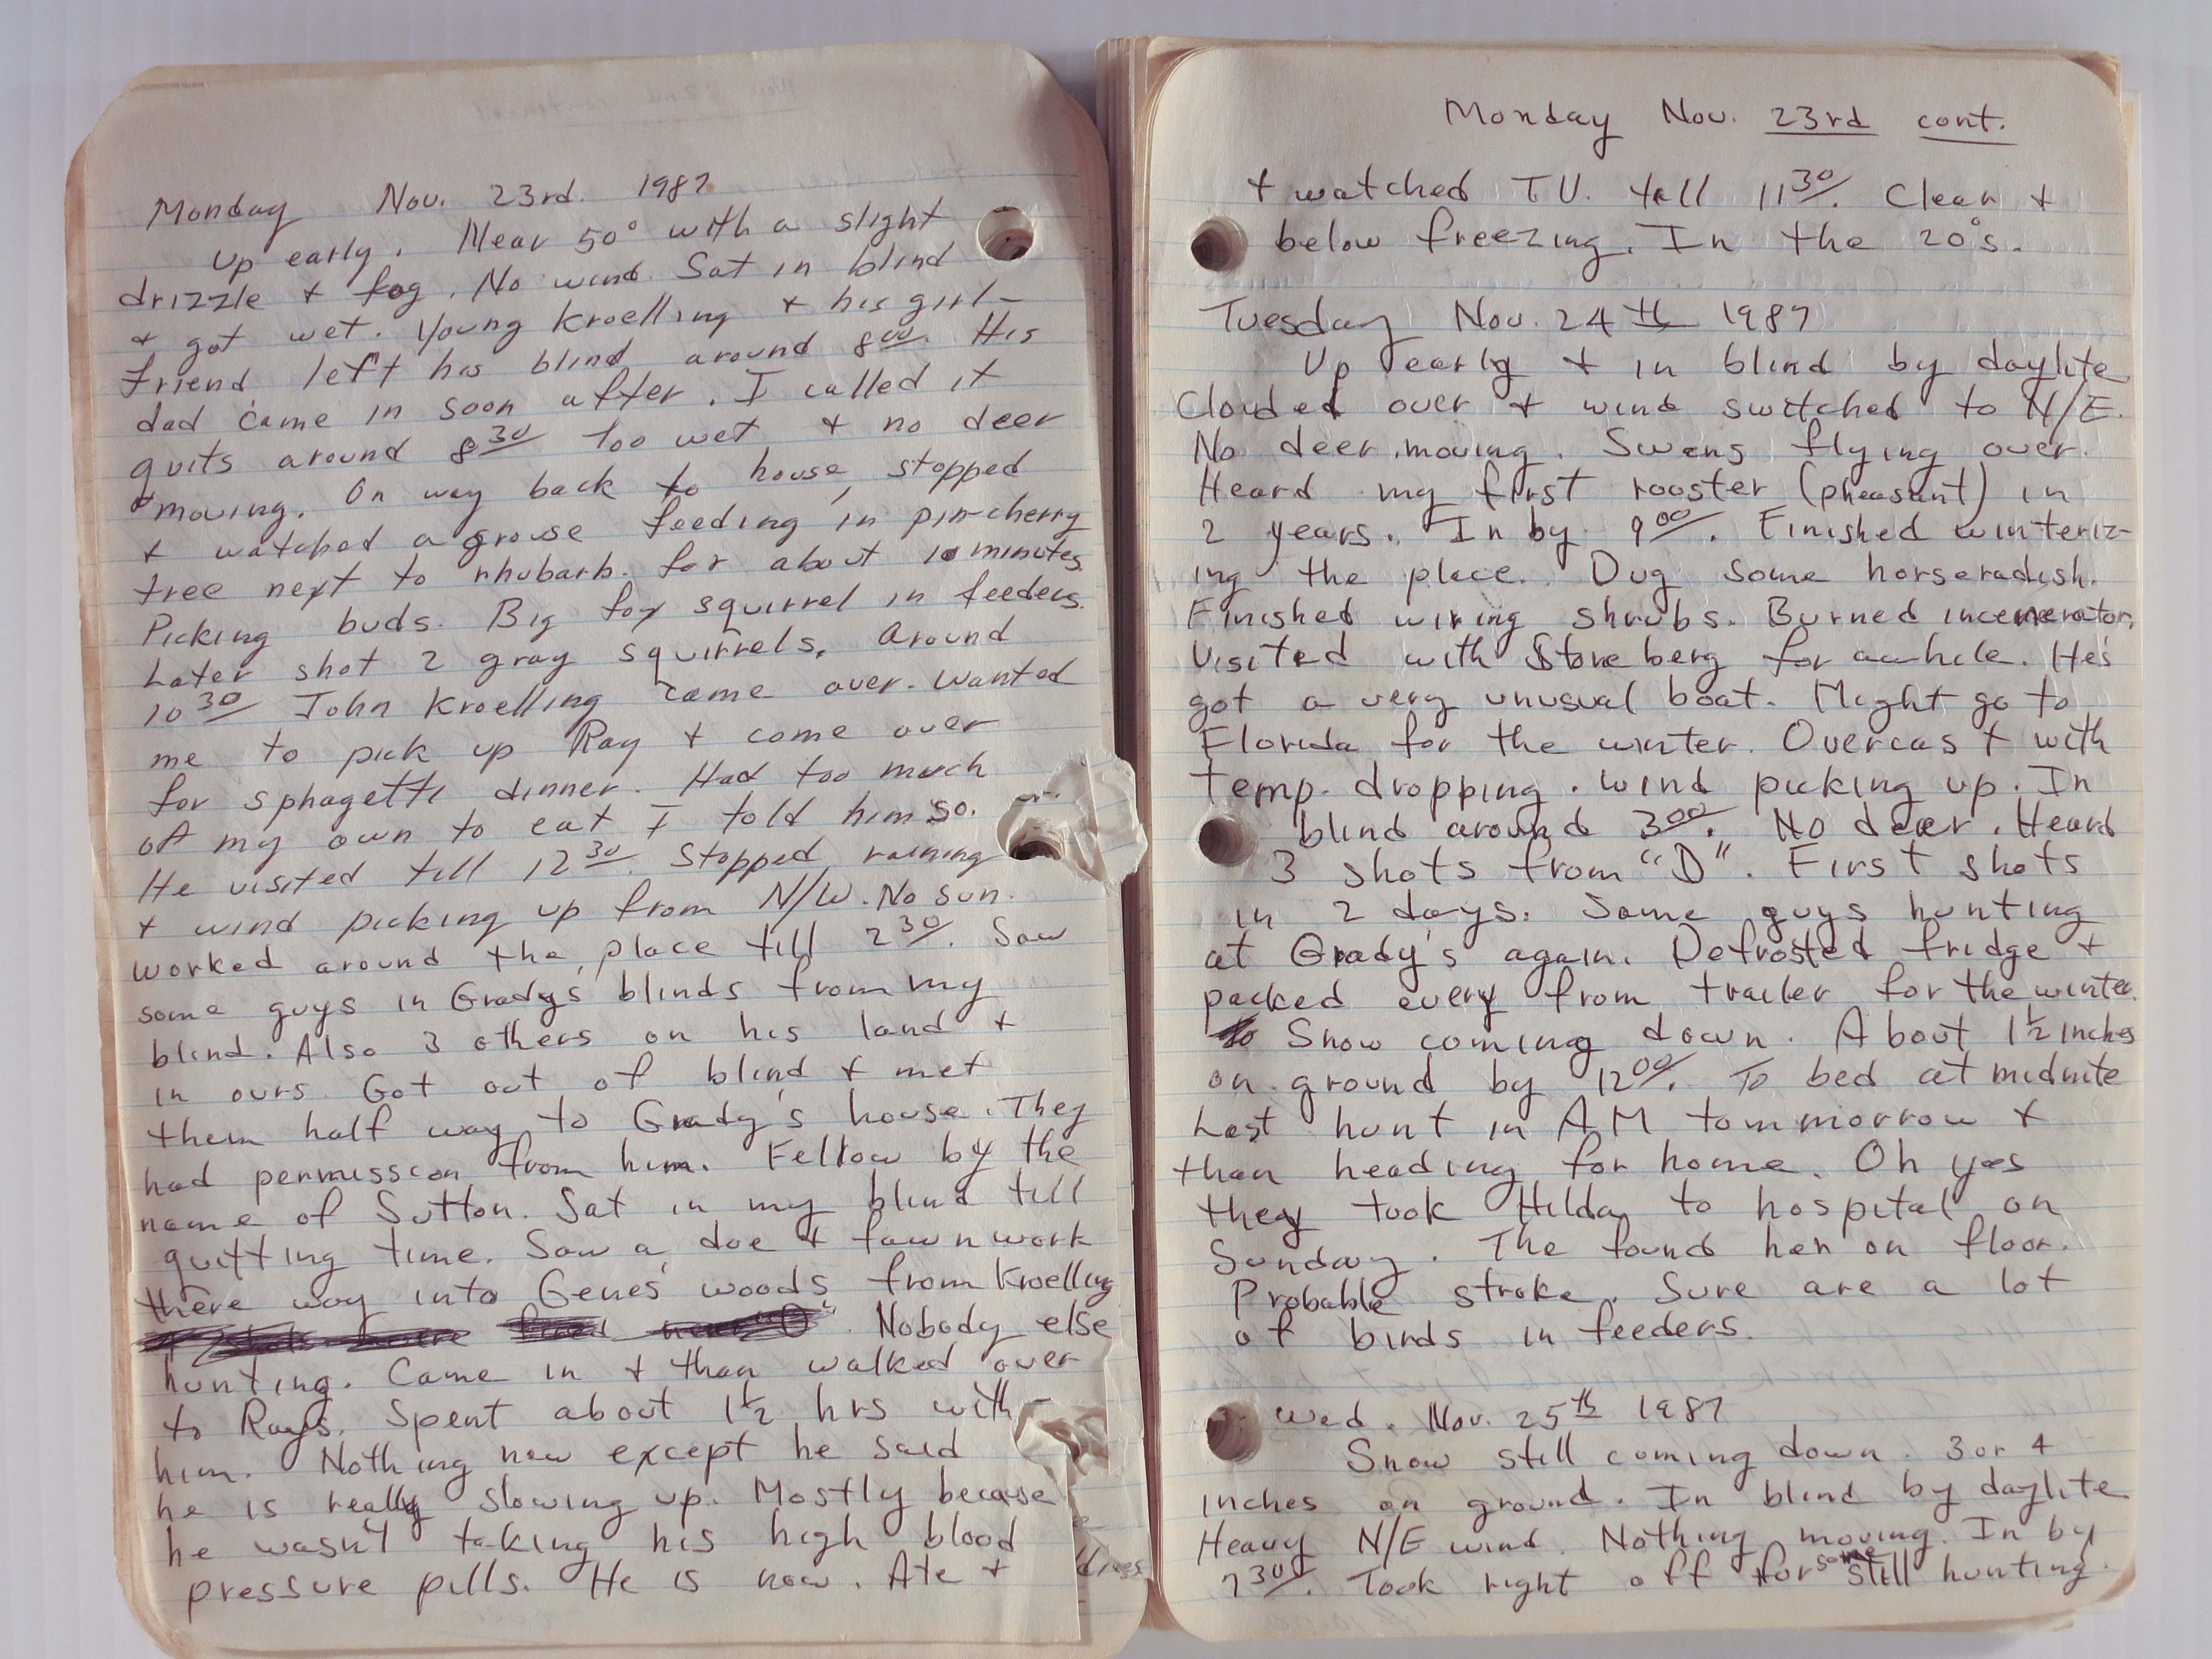 Monday Nov. 23rd. 1987
Up early. Near 50° with a slight
drizzle + fog. No wind. Sat in blind
+ got wet. Young Kroelling + his girl-
friend left his blind around 8⁰⁰. His
dad came in soon after. I called it
quits around 8³⁰ Too wet + no deer
moving. On way back to house, stopped
+ watched a grouse feeding in pin-cherry
tree next to rhubarb. for about 10 minutes.
Picking buds. Big fox squirrel in feeders.
Later shot 2 gray squirrels. Around
10³⁰ John Kroelling came over. Wanted
me to pick up Ray + come over
for sphagetti dinner. Had too much
of my own to eat I told him so.
He visited till 12³⁰. Stopped raining
+ wind picking up from N/W. No sun.
Worked around the place till 2³⁰. Saw
some guys in Gradys blinds from my
blind. Also 3 others on his land +
in ours. Got out of blind + met
them half way to Grady's house. They
had permission from him. Fellow by the
name of Sutton. Sat in my blind till
quitting time. Saw a doe + fawn work
there way into Genes' woods from Kroelling
Nobody else
hunting. Came in + than walked over
to Rays. Spent about 1½ hrs with
him. Nothing new except he said
he is really slowing up. Mostly because
he wasn't taking his high blood
pressure pills. He is now. Ate +
Monday Nov. 23rd cont.
+ watched T.V. till 11³⁰. Clear +
below freezing. In the 20°s.
Tuesday Nov. 24th 1987
Up early + in blind by daylite
Clouded over + wind switched to N/E.
No deer moving. Swans flying over.
Heard my first rooster (pheasant) in
2 years. In by 9⁰⁰. Finished winteriz-
ing the place. Dug some horseradish.
Finished wiring shrubs. Burned incenerator.
Visited with Stoneberg for awhile. He's
got a very unusual boat. Might go to
Florida for the winter. Overcast with
temp. dropping. Wind picking up. In
blind around 3⁰⁰. No deer. Heard
3 shots from "D". First shots
in 2 days. Same guys hunting
at Grady's again. Defrosted fridge +
packed every from trailer for the winter.
Snow coming down. About 1½ inches
on ground by 12⁰⁰. To bed at midnite
Last hunt in AM tommorrow +
than heading for home. Oh yes
they took Hilda to hospital on
Sunday. The found her on floor.
Probable stroke. Sure are a lot
of birds in feeders.
Wed. Nov. 25th 1987
Snow still coming down. 3 or 4
inches on ground. In blind by daylite
Heavy N/E wind. Nothing moving. In by
7³⁰. Took right off for some still hunting.